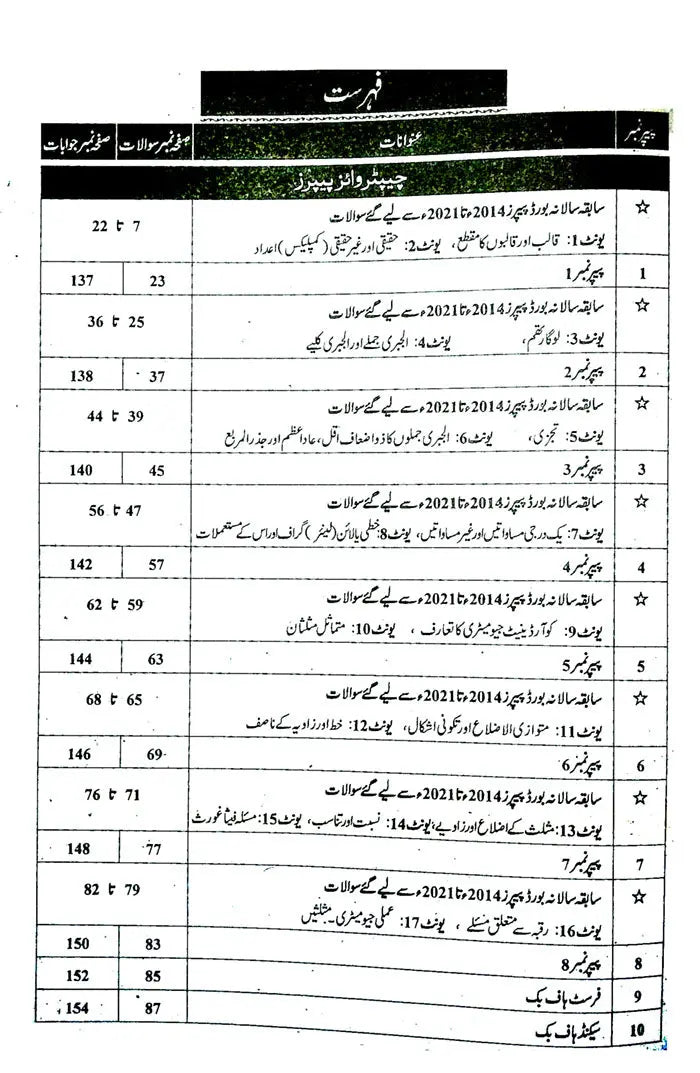 فہرست
پیپر نمبر عنوانات صفحہ نمبر سوالات صفحہ نمبر جوابات
چیپٹر وائز پیپرز
☆ سابقہ سالانہ بورڈ پیپرز 2014ء تا 2021ء سے لیے گئے سوالات 7 تا 22
یونٹ 1: قالب اور قالبوں کا مقطع، یونٹ 2: حقیقی اور غیر حقیقی (کمپلیکس) اعداد
1 پیپر نمبر 1 23 137
☆ سابقہ سالانہ بورڈ پیپرز 2014ء تا 2021ء سے لیے گئے سوالات 25 تا 36
یونٹ 3: لوگارتھم، یونٹ 4: الجبری جملے اور الجبری کلیے
2 پیپر نمبر 2 37 138
☆ سابقہ سالانہ بورڈ پیپرز 2014ء تا 2021ء سے لیے گئے سوالات 39 تا 44
یونٹ 5: تجزی، یونٹ 6: الجبری جملوں کا ذواضعاف اقل، عاداعظم اور جذر المربع
3 پیپر نمبر 3 45 140
☆ سابقہ سالانہ بورڈ پیپرز 2014ء تا 2021ء سے لیے گئے سوالات 47 تا 56
یونٹ 7: یک درجی مساواتیں اور غیر مساواتیں، یونٹ 8: خطی یالائن (لینئر) گراف اور اس کے مستعملات
4 پیپر نمبر 4 57 142
☆ سابقہ سالانہ بورڈ پیپرز 2014ء تا 2021ء سے لیے گئے سوالات 59 تا 62
یونٹ 9: کوآرڈینیٹ جیومیٹری کا تعارف، یونٹ 10: متماثل مثلثان
5 پیپر نمبر 5 63 144
☆ سابقہ سالانہ بورڈ پیپرز 2014ء تا 2021ء سے لیے گئے سوالات 65 تا 68
یونٹ 11: متوازی الاضلاع اور تکونی اشکال، یونٹ 12: خط اور زاویہ کے ناصف
6 پیپر نمبر 6 69 146
☆ سابقہ سالانہ بورڈ پیپرز 2014ء تا 2021ء سے لیے گئے سوالات 71 تا 76
یونٹ 13: مثلث کے اضلاع اور زاویے، یونٹ 14: نسبت اور تناسب، یونٹ 15: مسئلہ فیثاغورث
7 پیپر نمبر 7 77 148
☆ سابقہ سالانہ بورڈ پیپرز 2014ء تا 2021ء سے لیے گئے سوالات 79 تا 82
یونٹ 16: رقبہ سے متعلق مسئلے، یونٹ 17: عملی جیومیٹری۔ مثلثیں
8 پیپر نمبر 8 83 150
9 فرسٹ ہاف بک 85 152
10 سیکنڈ ہاف بک 87 154